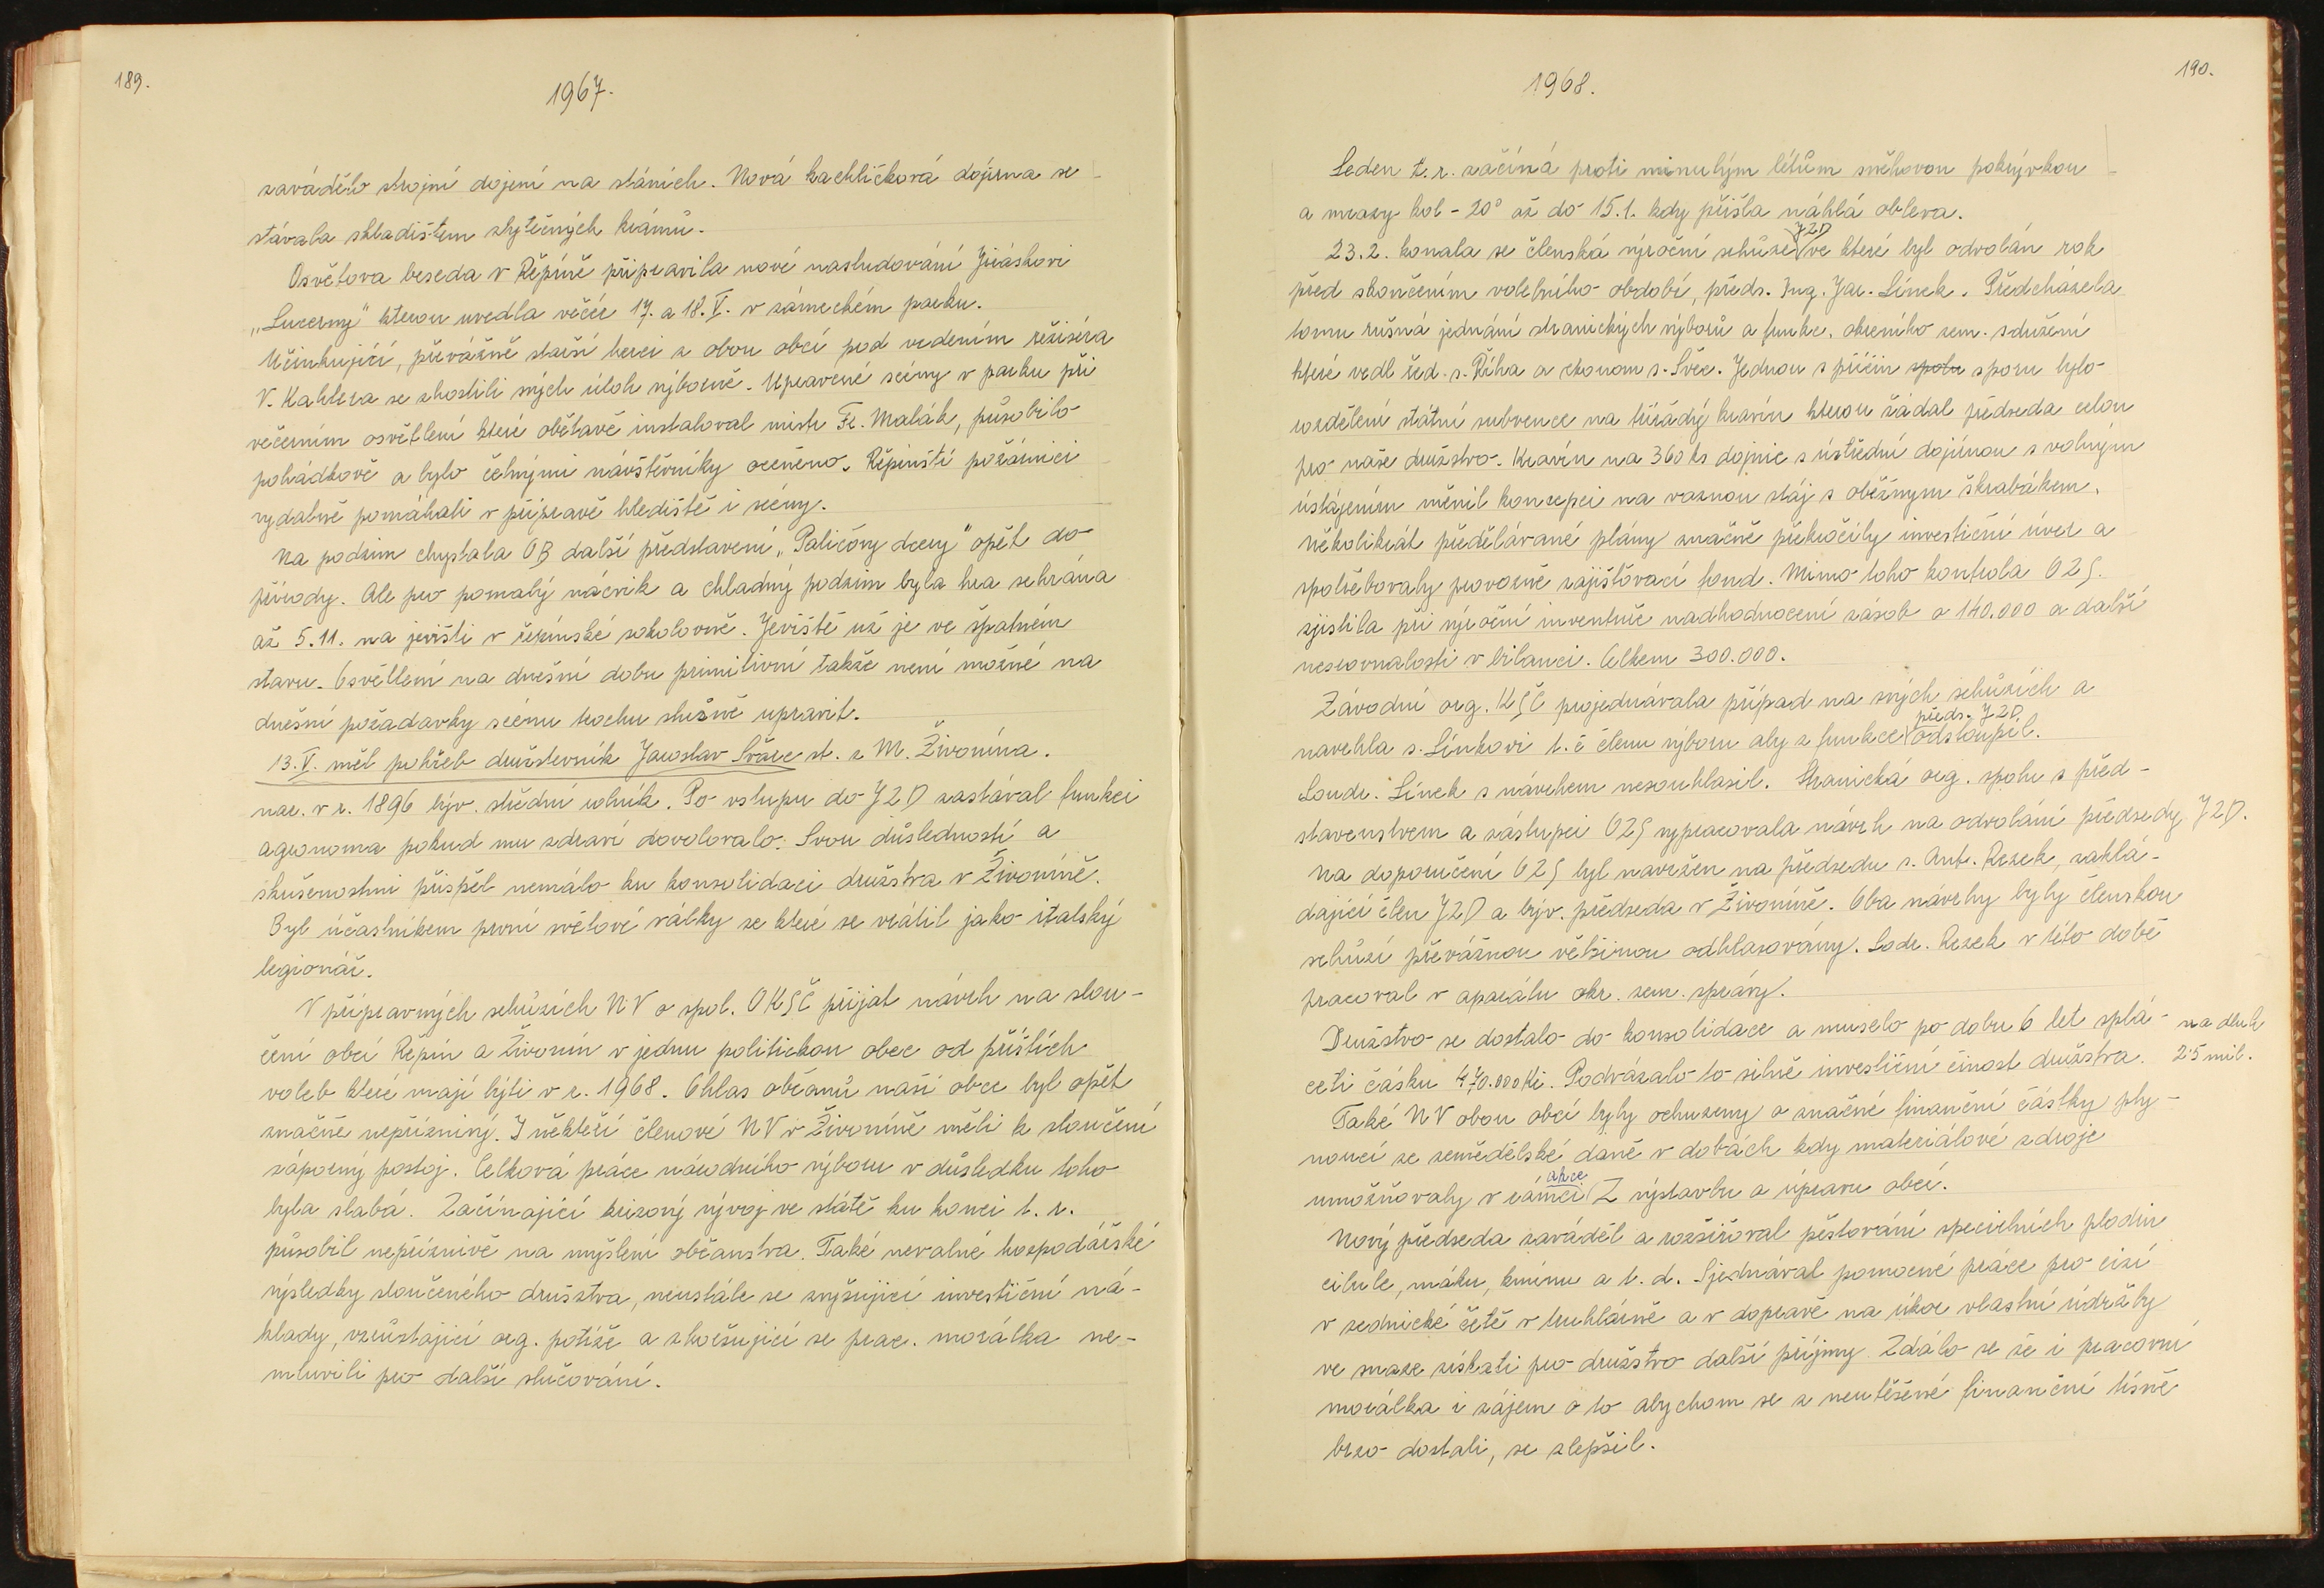 189.
1967.
zavádělo strojní dojení na stáních. Nová kachlíčková dojírna se
stávala skladištem zbytečných krámů.
Osvětova beseda v Řepíně připravila nové nastudování Jiráskovi
„Lucerny" kterou uvedla večer 17. a 18. V. v zámeckém parku.
Učinkující, převážně starší herci z obou obcí pod vedením režiséra
V. Kahlera se zhostili svých úloh výborně. Upravené scény v parku při
večerním osvětlení které obětavě instaloval mistr Fr. Malák, působilo
pohádkově a bylo četnými návštěvníky oceněno. Řepínští požárníci
vydatně pomáhali v přípravě hlediště i scény.
Na podzim chystala OB další představení „Paličovy dcery" opět do
přírody. Ale pro pomalý nácvik a chladný podzim byla hra sehrána
až 5.11. na jevišti v řepínské sokolovně. Jeviště už je ve špatném
stavu. Osvětlení na dnešní dobu primitivní takže není možné na
dnešní požadavky scénu trochu slušně upravit.
13. V. měl pohřeb družstevník Jaroslav Švarc st. z M. Živonína.
nar. v r. 1896 býv. střední rolník. Po vstupu do JZD zastával funkci
agronoma pokud mu zdraví dovolovalo. Svou důsledností a
skušenostmi přispěl nemálo ku konsolidaci družstva v Živoníně.
Byl účastníkem první světové války ze které se vrátil jako italský
legionář.
V přípravných schůzích NV a spol. OKSČ přijat návrh na slou-
čení obcí Řepín a Živonín v jednu politickou obec od příštích
voleb které mají býti v r. 1968. Ohlas občanů naší obce byl opět
značně nepříznivý. I někteří členové NV v Živoníně měli k sloučení
záporný postoj. Celková práce národního výboru v důsledku toho
byla slabá. Začínající krizový vývoj ve státě ku konci t. r.
působil nepříznivě na myšlení občanstva. Také nevalné hospodářské
výsledky sloučeného družstva, neustále se zvyšující investiční ná-
klady, vzrůstající org. potíže a zhoršující se prac. morálka ne-
mluvili pro další slučování.
1968.
190.
Leden t. r. začíná proti minulým létům sněhovou pokrývkou
a mrazy kol -20° až do 15.1. kdy přišla náhlá obleva.
JZD
23.2. konala se členská výroční schůze ve které byl odvolán rok
před skončením volebního období, předs. Ing. Jar. Línek. Předcházela
tomu rušná jednání stranických výborů a funkc. okresního zem. sdružení
které vedl řed. s. Říha a ekonom s. Švec. Jednou s příčin spolu sporu bylo
rozdělení státní subvence na tířádý kravín kterou žádal předseda celou
pro naše družstvo. Kravín na 360 ks dojnic s ústřední dojírnou s volným
ústájením měnil koncepci na vaznou stáj s oběžným škrabákem.
Několikrát předělávané plány značně překročily investiční úvěr a
spotřebovaly provozně zajišťovací fond. Mimo toho kontrola OZS.
zjistila při výroční inventuře nadhodnocení zásob o 140.000 a další
nesrovnalosti v bilanci. Celkem 300.000.
Závodní org. KSČ projednávala případ na svých schůzích a
předs. JZD
navrhla s. Línkovi t. č členu výboru aby z funkce odstoupil.
Soudr. Línek s návrhem nesouhlasil. Stranická org. spolu s před-
stavenstvem a zástupci OZS vypracovala návrh na odvolání předsedy JZD.
Na doporučení OZS byl navržen na předsedu s. Ant. Rezek, zaklá-
dající člen JZD a býv. předseda v Živoníně. Oba návrhy byly členskou
schůzí převážnou většinou odhlasovány. Sodr. Rezek v této době
pracoval v aparátu okr. zem. správy.
Družstvo se dostalo do konsolidace a muselo po dobu 6 let splá-
na dluh
ceti částku 470.000 Kč. Podvázalo to silně investiční činost družstva.
25 mil.
Také NV obou obcí byly ochuzeny o značné finanční částky ply-
noucí ze zemědělské daně v dobách kdy materiálové zdroje
akce
umožňovaly v rámci Z výstavbu a úpravu obcí.
Nový předseda zaváděl a rozšiřoval pěstování specielních plodin
cibule, máku, kmínu a t. d. Sjednával pomocné práce pro cizí
v zednické četě v truhlárně a v dopravě na úkor vlastní údržby
ve snaze získati pro družstvo další příjmy. Zdálo se že i pracovní
morálka i zájem o to abychom se z neutěšené finanční tísně
brzo dostali, se zlepšil.